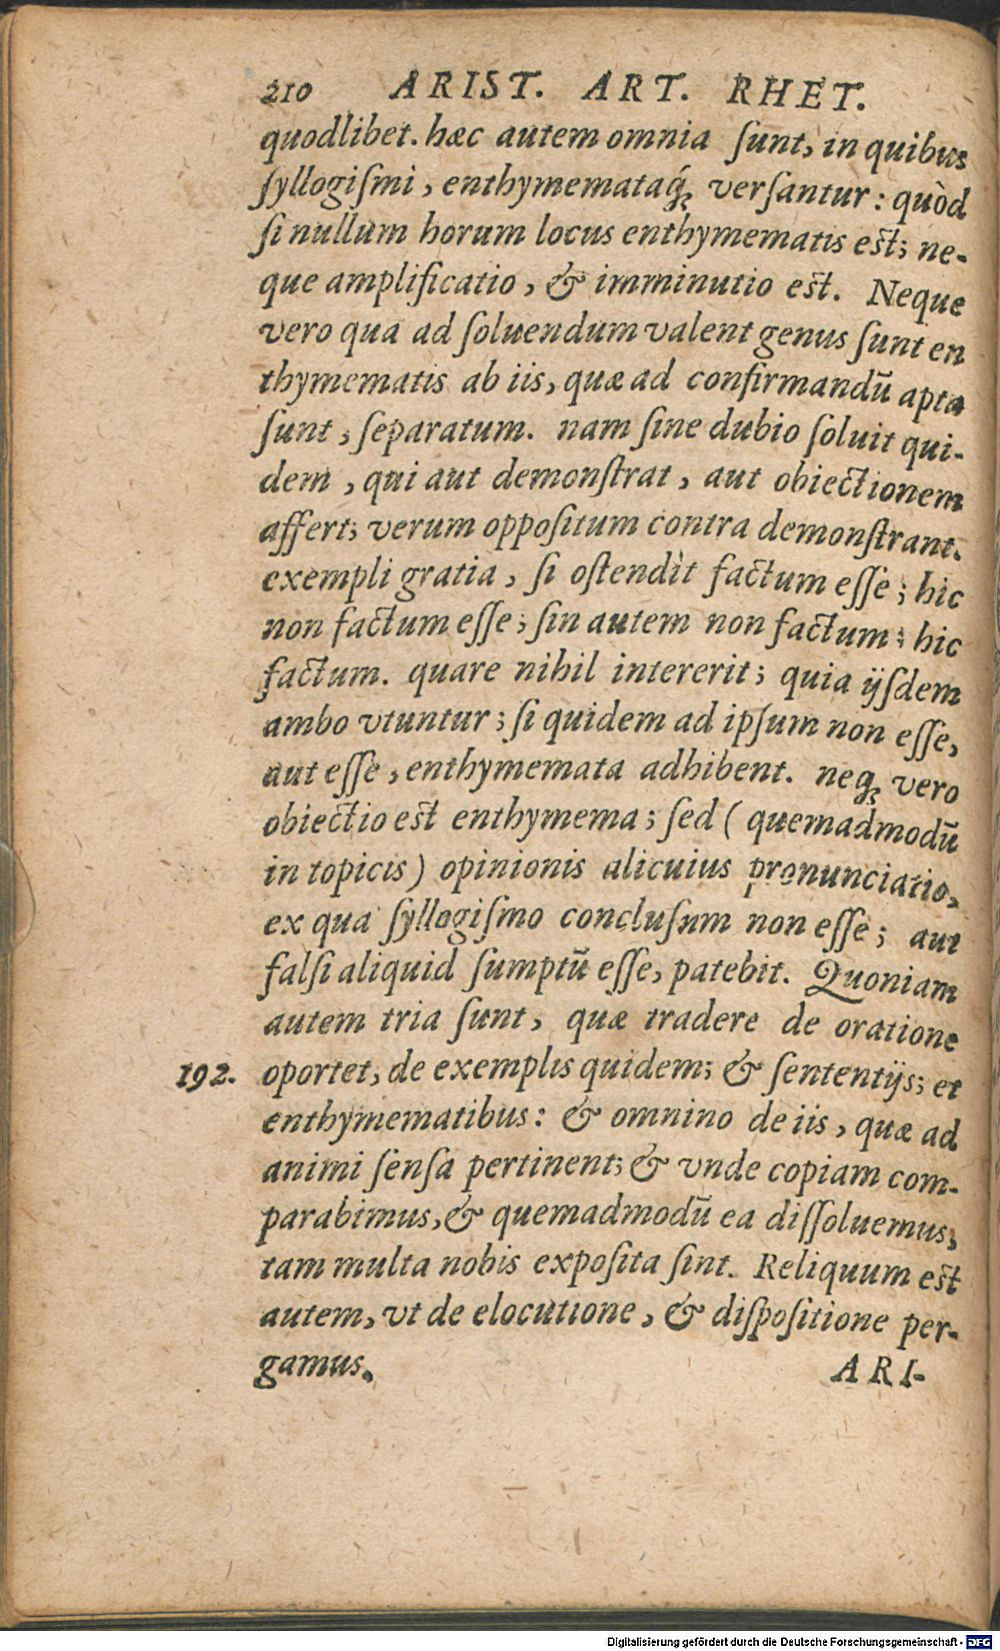 210 ARIST. ART. RHET.
quodlibet. hæc autem omnia ſunt, in quibus
ſyllogiſmi, enthymemataq́; verſantur: quòd
ſi nullum horum locus enthymematis est; ne-
que amplificatio, & imminutio est. Neque
vero qua ad ſoluendum valent genus ſunt en
thymematis ab iis, quæ ad confirmandũ apta
ſunt, ſeparatum. nam ſine dubio ſoluit qui-
dem, qui aut demonſtrat, aut obiectionem
affert; verum oppoſitum contra demonſtrant.
exempli gratia, ſi oſtendìt factum eſſe; hic
non factum eſſe; ſin autem non factum: hic
factum. quare nihil intererit; quia ijſdem
ambo vtuntur; ſi quidem ad ipſum non eſſe,
aut eſſe, enthymemata adhibent. neq; vero
obiectio est enthymema; ſed (quemadmodũ
in topicis) opinionis alicuius pronunciatio,
ex qua ſyllogiſmo concluſum non eſſe; aut
falſi aliquid ſumptũ eſſe, patebit. Quoniam
autem tria ſunt, quæ tradere de oratione
192. oportet, de exemplis quidem; & ſententijs; et
enthymematibus: & omnino de iis, quæ ad
animi ſenſa pertinent; & vnde copiam com-
parabimus, & quemadmodũ ea diſſoluemus,
tam multa nobis expoſita ſint. Reliquum est
autem, vt de elocutione, & diſpoſitione per-
gamus. ARI-
Digitalisierung gefördert durch die Deutsche Forschungsgemeinschaft - DFG